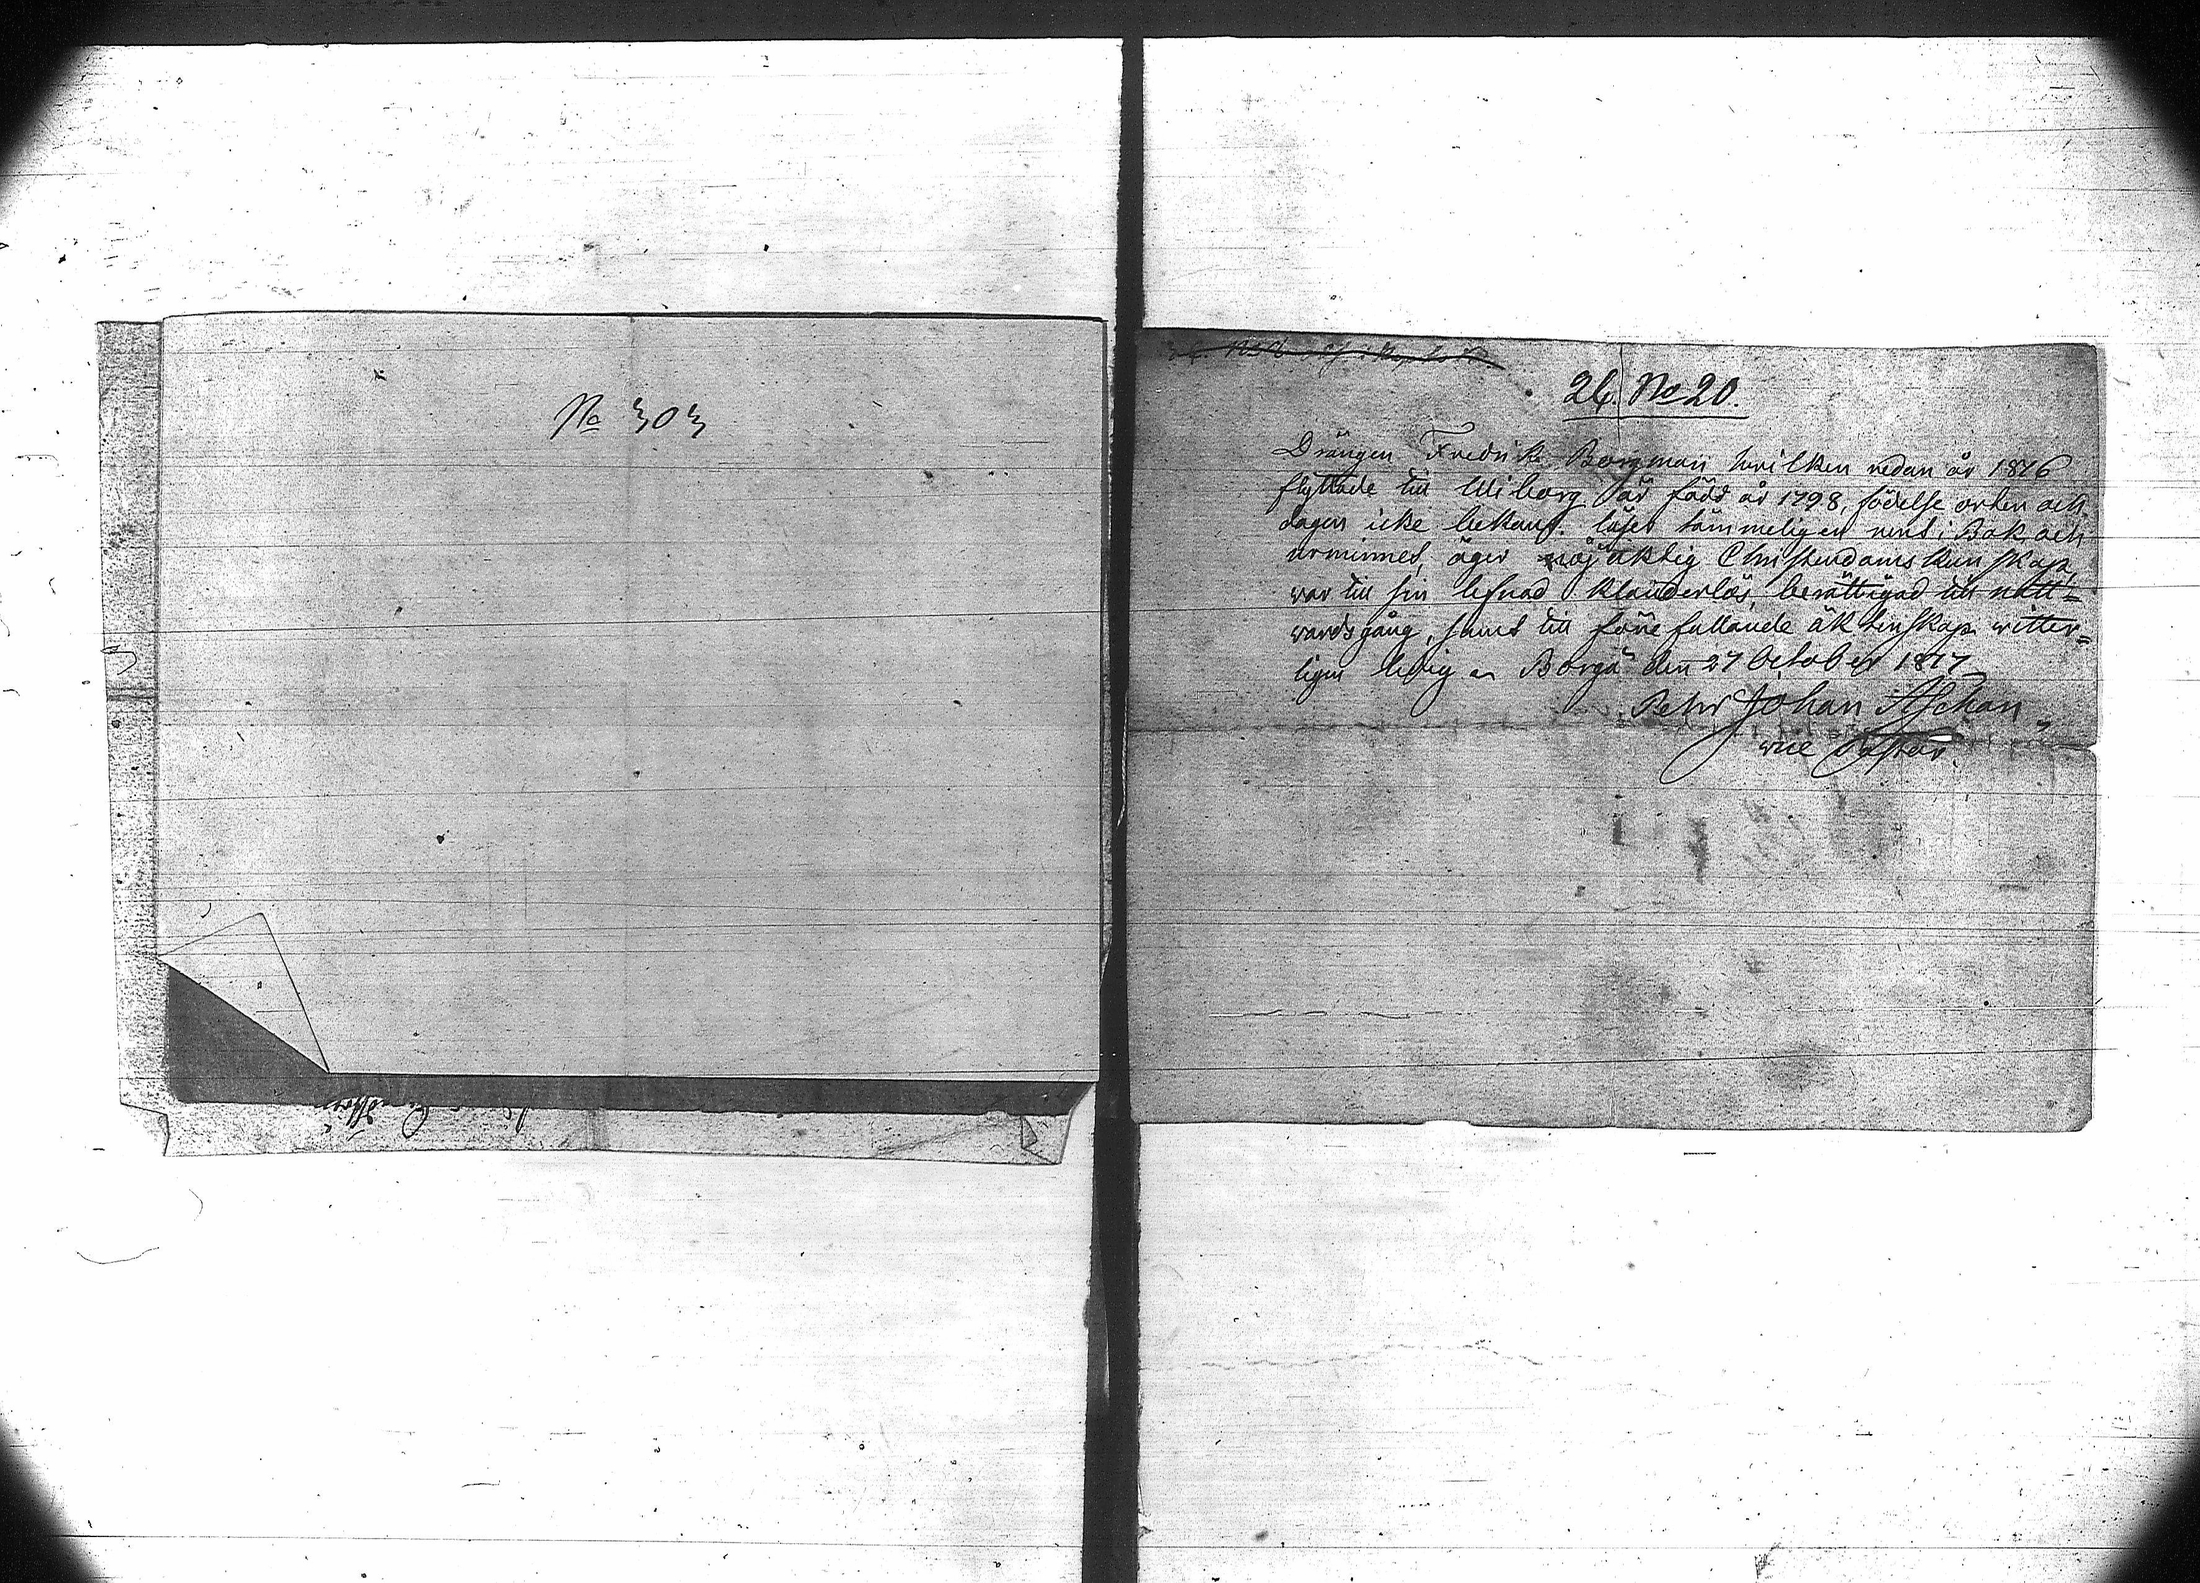 No 303
26. No 20.
Drängen Fredrik Borgman hvilken redan år 1816
flyttade till Wiborg är född år 1798, födelse orten och
dagen icke bekant. läser tämmeligen rent i Bok och
urminnet, äger nöjaktig Christendoms kunskap,
war till sin lefnad klanderlös, berättigad till natt=
wardsgång, samt till förefallande äktenskap witter=
ligen ledig. Borgå den 27 October 1817
Petr Johan Aschan
vice Pastor.